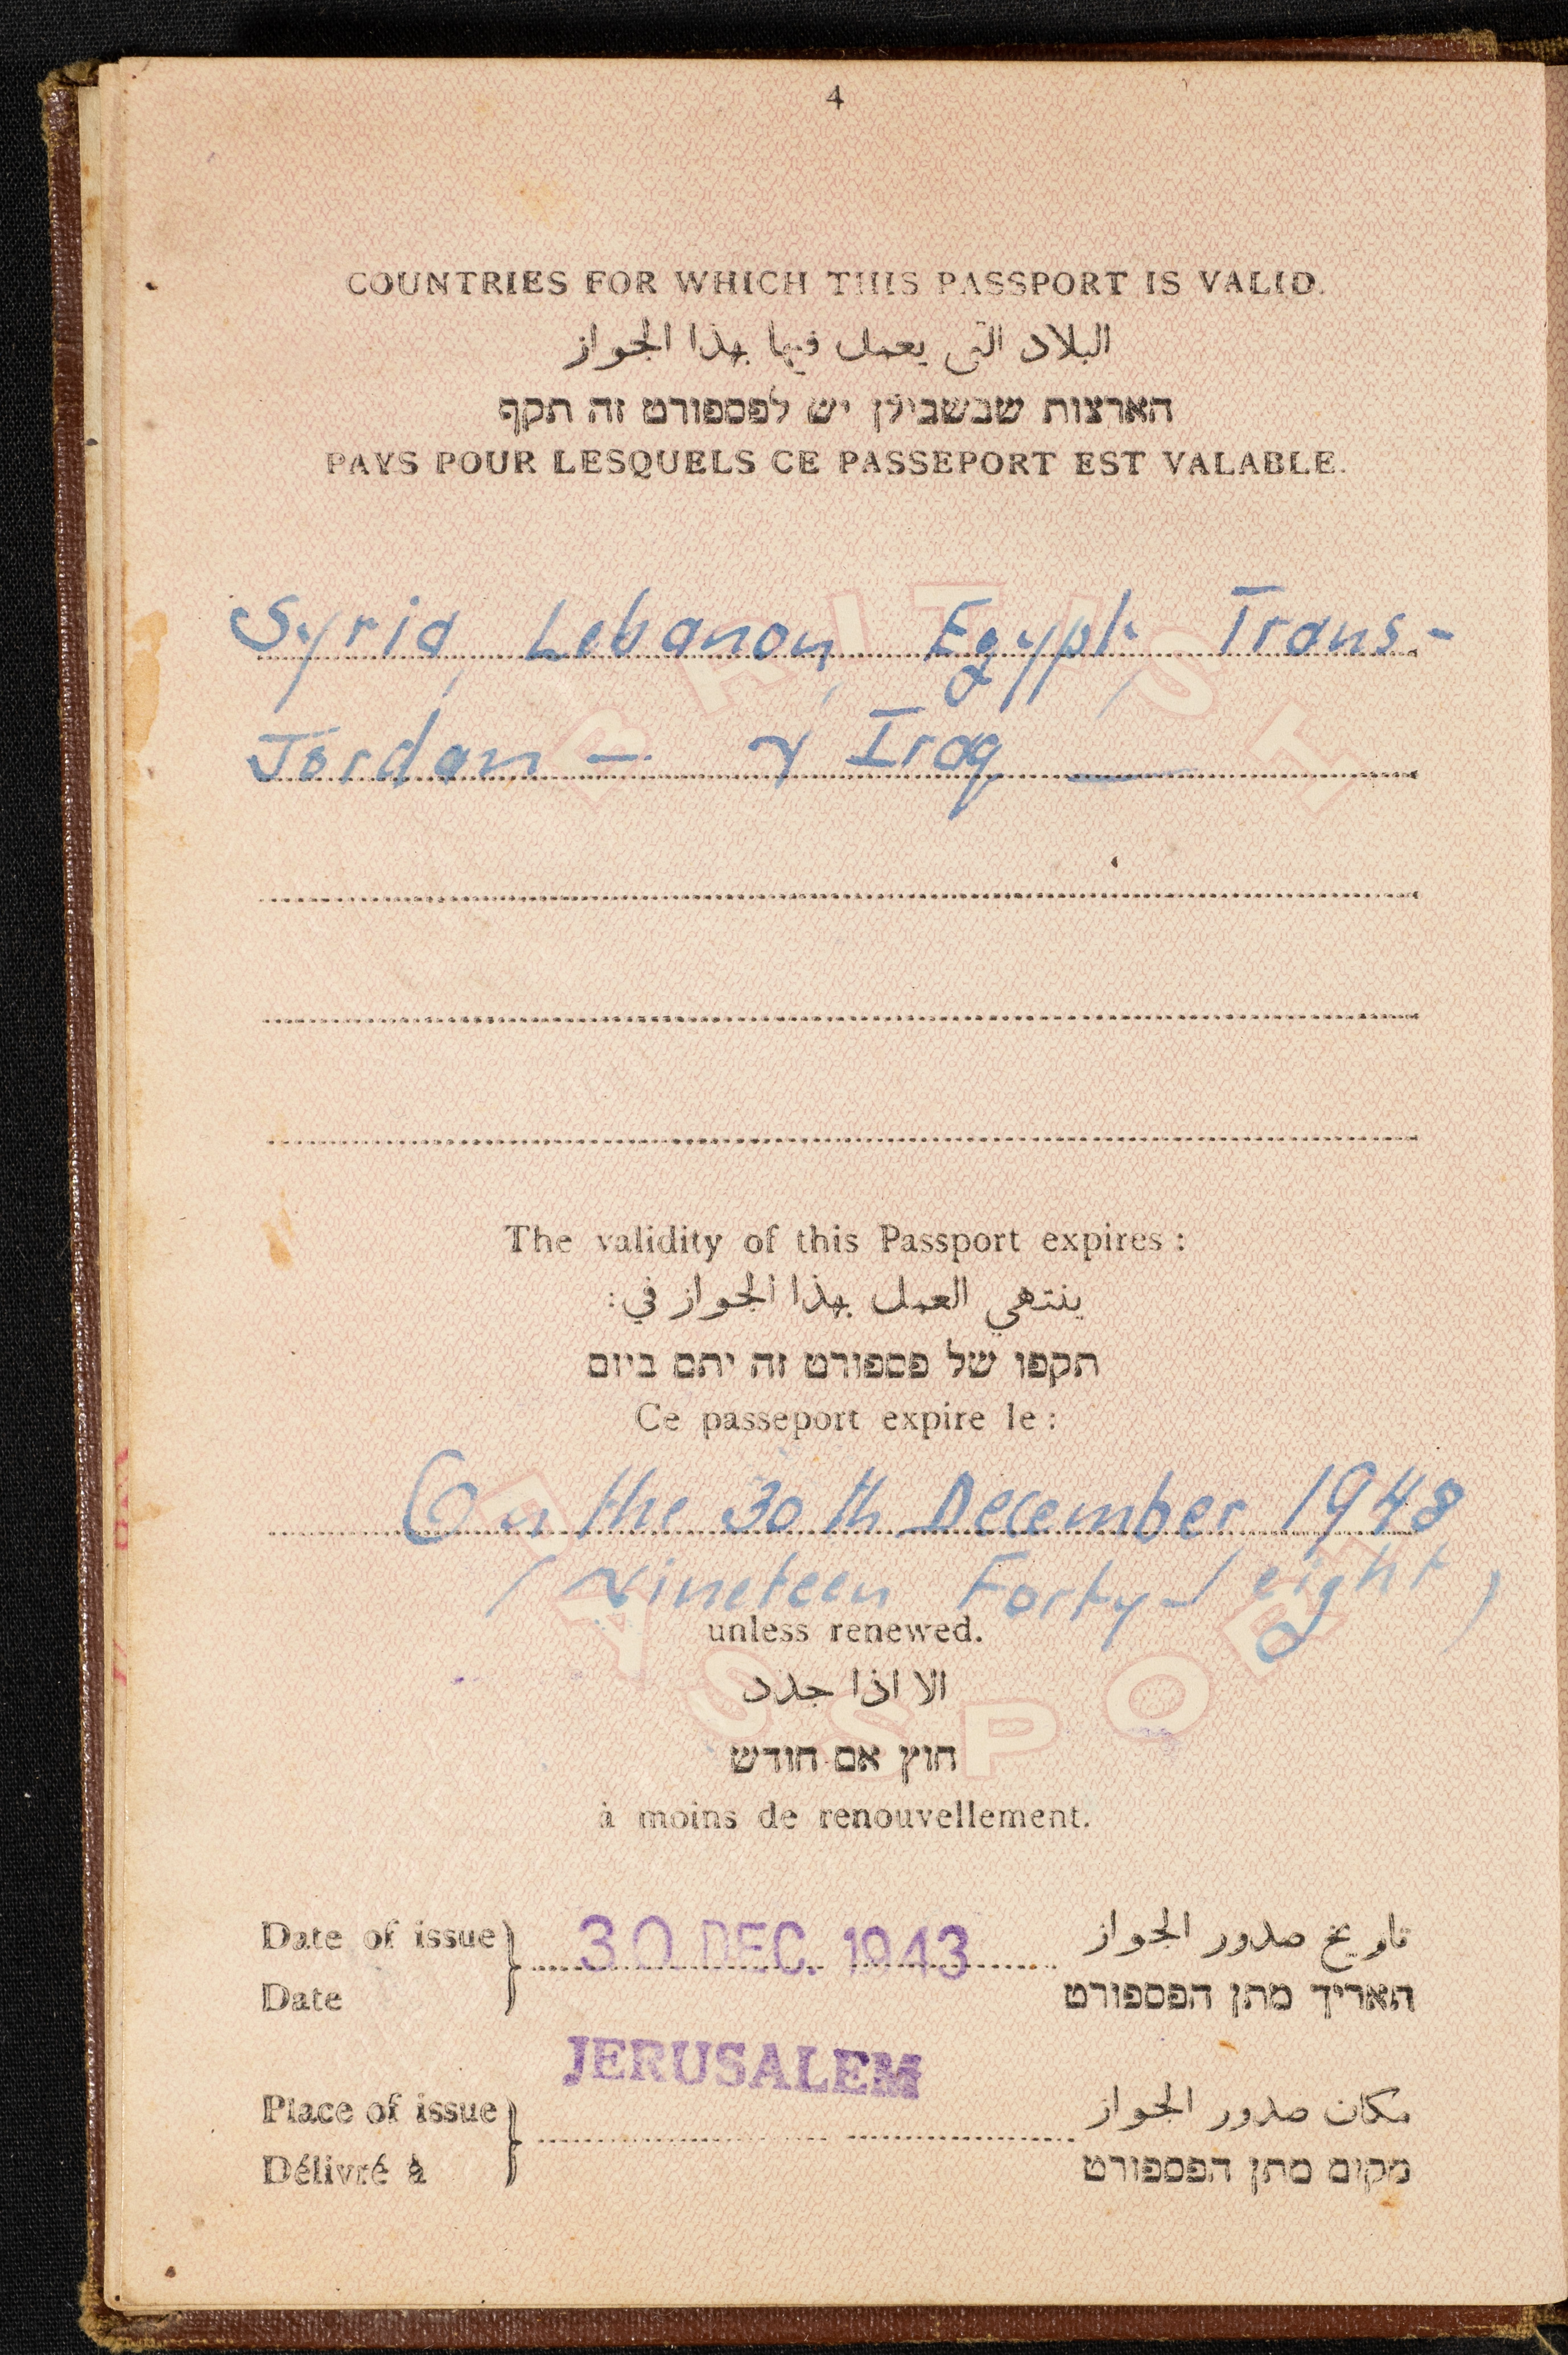 4
COUNTRIES FOR WHICH THIS PASSPORT IS VALID.
البلاد التي يعمل فيها بهذا الجواز
הארצות שבשבילן יש לפספורט זה תקף
PAYS POUR LESQUELS CE PASSEPORT EST VALABLE.
Syria, Lebanon, Egypt, Trans-
Jordan — & Iraq —
The validity of this Passport expires :
ينتهي العمل بهذا الجواز في :
תקפו של פספורט זה יתם ביום
Ce passeport expire le :
On the 30th December 1948
(Nineteen Forty-eight)
unless renewed.
الا اذا جدد
חוץ אם חודש
à moins de renouvellement.
Date of issue 30 DEC. 1943 تاريخ صدور الجواز
Date תאריך מתן הפספורט
JERUSALEM
Place of issue مكان صدور الجواز
Délivré à מקום מתן הפספורט
BRITISH
PASSPORT